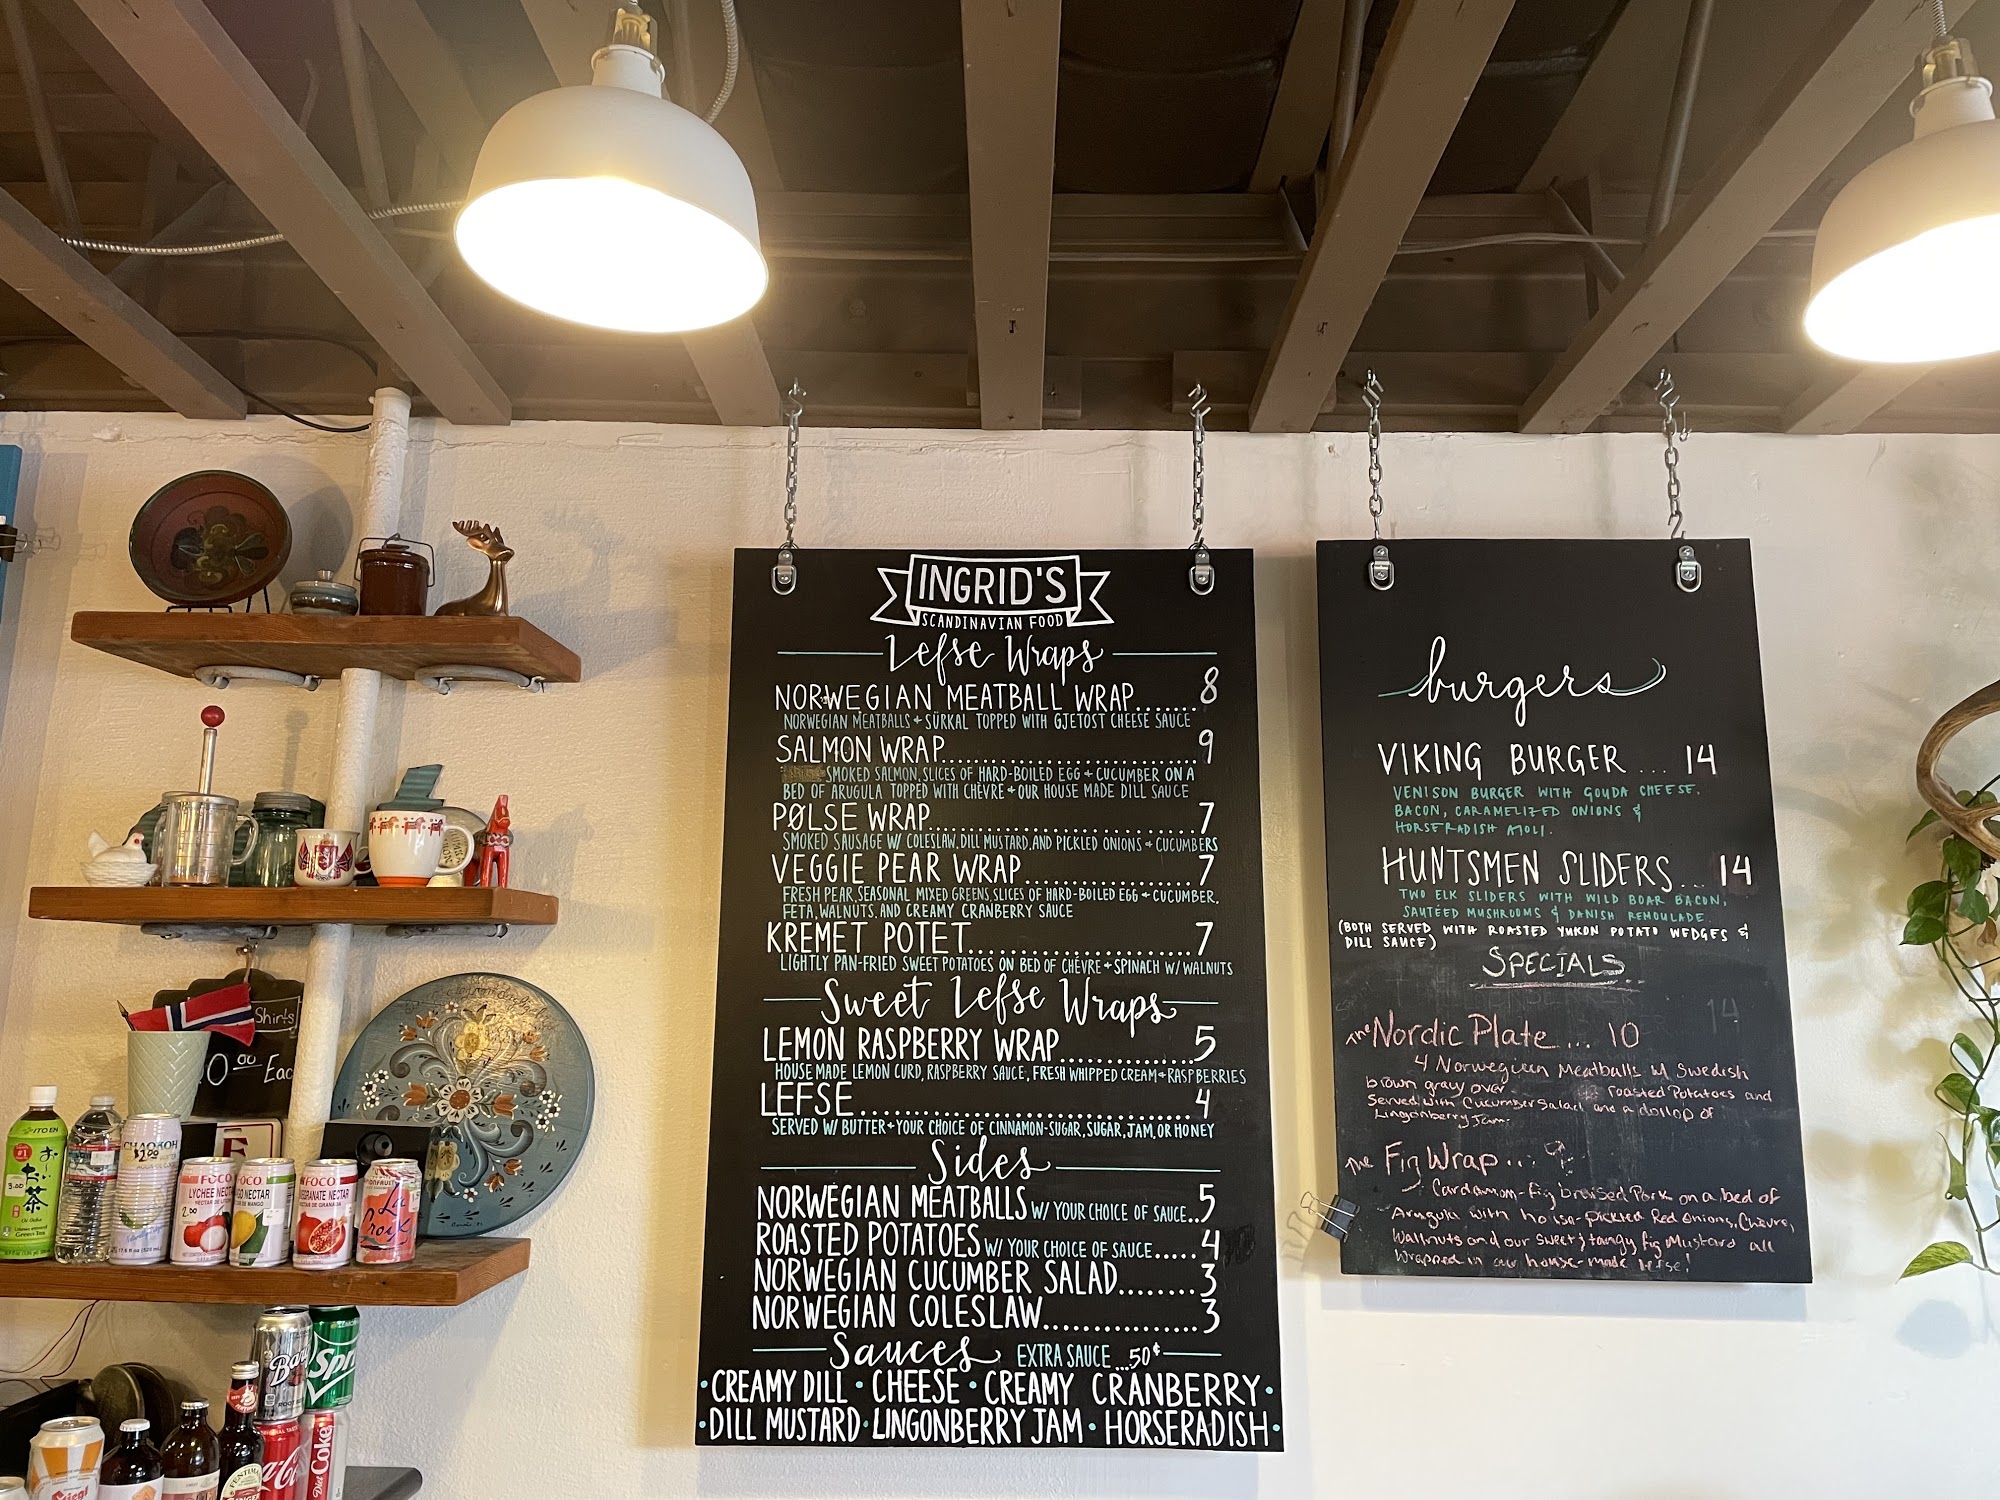 INGRID'S
SCANDINAVIAN FOOD
Lefse Wraps
NORWEGIAN MEATBALL WRAP.......8
NORWEGIAN MEATBALLS + SÜRKAL TOPPED WITH GJETOST CHEESE SAUCE
SALMON WRAP..............................9
SMOKED SALMON, SLICES OF HARD-BOILED EGG + CUCUMBER ON A
BED OF ARUGULA TOPPED WITH CHÈVRE + OUR HOUSE MADE DILL SAUCE
PØLSE WRAP................................7
SMOKED SAUSAGE W/ COLESLAW, DILL MUSTARD, AND PICKLED ONIONS + CUCUMBERS
VEGGIE PEAR WRAP.....................7
FRESH PEAR, SEASONAL MIXED GREENS, SLICES OF HARD-BOILED EGG + CUCUMBER,
FETA, WALNUTS, AND CREAMY CRANBERRY SAUCE
KREMET POTET..........................7
LIGHTLY PAN-FRIED SWEET POTATOES ON BED OF CHÈVRE + SPINACH W/ WALNUTS
Sweet Lefse Wraps
LEMON RASPBERRY WRAP................5
HOUSE MADE LEMON CURD, RASPBERRY SAUCE, FRESH WHIPPED CREAM + RASPBERRIES
LEFSE.......................................4
SERVED W/ BUTTER + YOUR CHOICE OF CINNAMON-SUGAR, SUGAR, JAM, OR HONEY
Sides
NORWEGIAN MEATBALLS W/ YOUR CHOICE OF SAUCE..5
ROASTED POTATOES W/ YOUR CHOICE OF SAUCE.....4
NORWEGIAN CUCUMBER SALAD........3
NORWEGIAN COLESLAW................3
Sauces EXTRA SAUCE ...50¢
• CREAMY DILL • CHEESE • CREAMY CRANBERRY •
• DILL MUSTARD • LINGONBERRY JAM • HORSERADISH •
burgers
VIKING BURGER ... 14
VENISON BURGER WITH GOUDA CHEESE.
BACON, CARAMELIZED ONIONS &
HORSERADISH AIOLI.
HUNTSMEN SLIDERS... 14
TWO ELK SLIDERS WITH WILD BOAR BACON,
SAUTÉED MUSHROOMS & DANISH REMOULADE.
(BOTH SERVED WITH ROASTED YUKON POTATO WEDGES &
DILL SAUCE)
SPECIALS
14
The Nordic Plate ... 10
4 Norwegieen Meatballs w/ Swedish
brown gravy over roasted Potatoes and
Served with Cucumber Salad and a dollop of
Lingonberry Jam.
The Fig Wrap ... 9
Cardamom-Fig braised Pork on a bed of
Arugula with house-pickled Red Onions, Chevre,
Walnuts and our sweet & tangy fig Mustard all
wrapped in our house-made lefse!
Shirts
0.00 Each
ITO EN
#1
お～いお茶
3.00
Oi Ocha
Green Tea
CHAOKOH
$2.00
FOCO
LYCHEE NECTAR
2.00
FOCO
FOCO
La Croix
Barq's
Sprite
Coca-Cola
Diet Coke
Stiegl
FENTIMANS